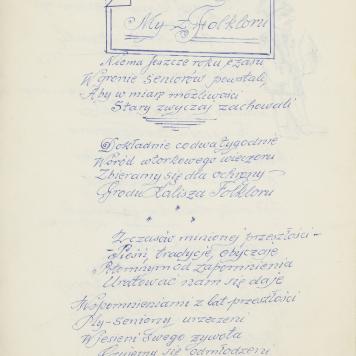 My z Folkloru
Niema jeszcze roku czasu
W gronie seniorów powstali,
Aby w miarę możliwości
Stary zwyczaj zachowali
Dokładnie co dwa tygodnie
Wśród wtorkowego wieczoru
Zbieramy się dla ochrony
Grodu Kalisza Folkloru
* * *
Z czasów minionej przeszłości –
Pieśń, tradycję, obyczaje
Potomnym od zapomnienia
Uratować nam się daje
Wspomnieniami z lat przeszłości
My – Seniorzy urzeczeni
W jesieni swego żywota
Czujemy się odmłodzeni